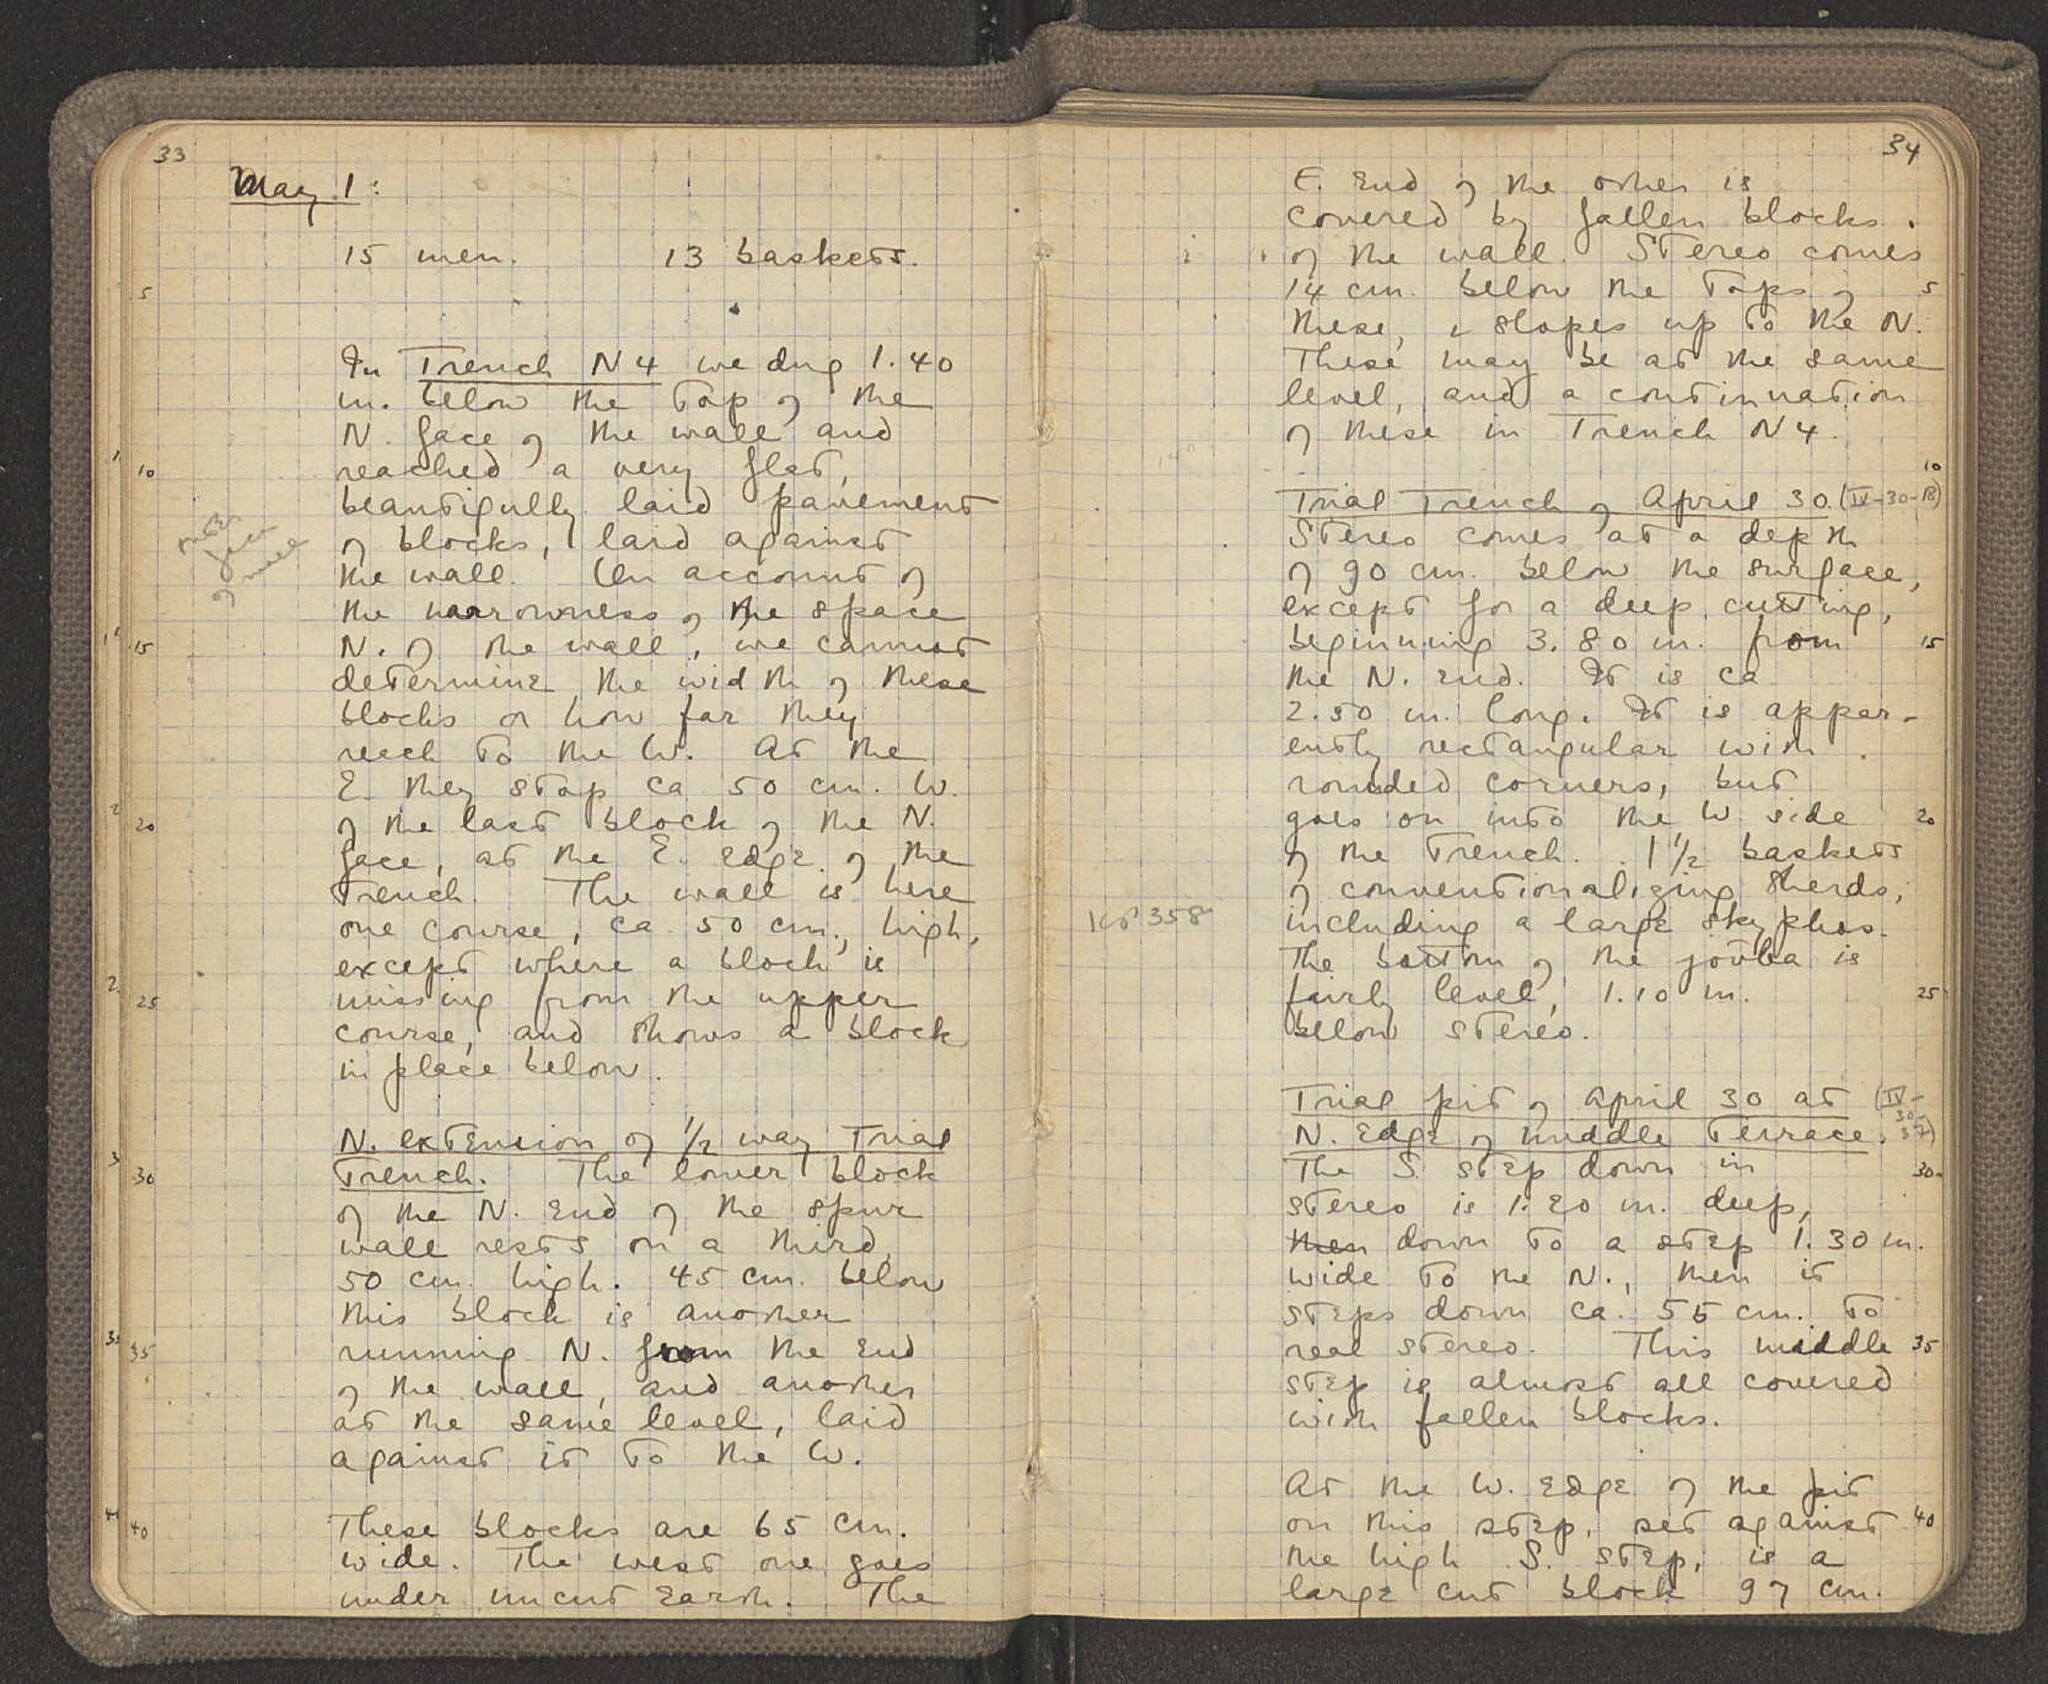 33
May 1:
15 men. 13 baskets.
5
In Trench N4 we dug 1.40
m. below the top of the
N. face of the wall and
10 reached a very flat,
beautifully laid pavement
of blocks, laid against
the wall. On account of
the narrowness of the space
15 N. of the wall, we cannot
determine the width of these
blocks or how far they
reach to the W. At the
E. they stop ca 50 cm. W.
20 of the last block of the N.
face, at the E. edge of the
trench. The wall is here
one course, ca. 50 cm., high,
except where a block is
25 missing from the upper
course, and shows a block
in place below.
N. extension of 1/2 way Trial
30 Trench. The lower block
of the N. end of the spur
wall rests on a third,
50 cm. high. 45 cm. below
this block is another
35 running N. from the end
of the wall, and another
at the same level, laid
against it to the W.
40 These blocks are 65 cm.
wide. The west one goes
under uncut earth. The
34
E. end of the other is
covered by fallen blocks
of the wall. Stereo comes
14 cm. below the tops of 5
these, & slopes up to the N.
These may be at the same
level, and a continuation
of these in Trench N4.
10
Trial Trench of April 30 (IV-30-B)
Stereo comes at a depth
of 90 cm. below the surface,
except for a deep cutting,
beginning 3.80 m. from 15
the N. end. It is ca
2.50 m. long. It is appar-
ently rectangular with
rounded corners, but
goes on into the W. side 20
of the trench. 1 1/2 baskets
of conventionalizing sherds,
KP 358 including a large skyphos.
The bottom of the γούβα is
fairly level, 1.10 m. 25
below stereo.
Trial pit of April 30 at (IV-
30-
N. edge of middle Terrace.
The S. step down in 30
stereo is 1.20 m. deep,
then down to a step 1.30 m.
wide to the N., then it
steps down ca. 55 cm. to
real stereo. This middle 35
step is almost all covered
with fallen blocks.
At the W. edge of the pit
on this step, set against 40
the high S. step, is a
large cut block 97 cm.